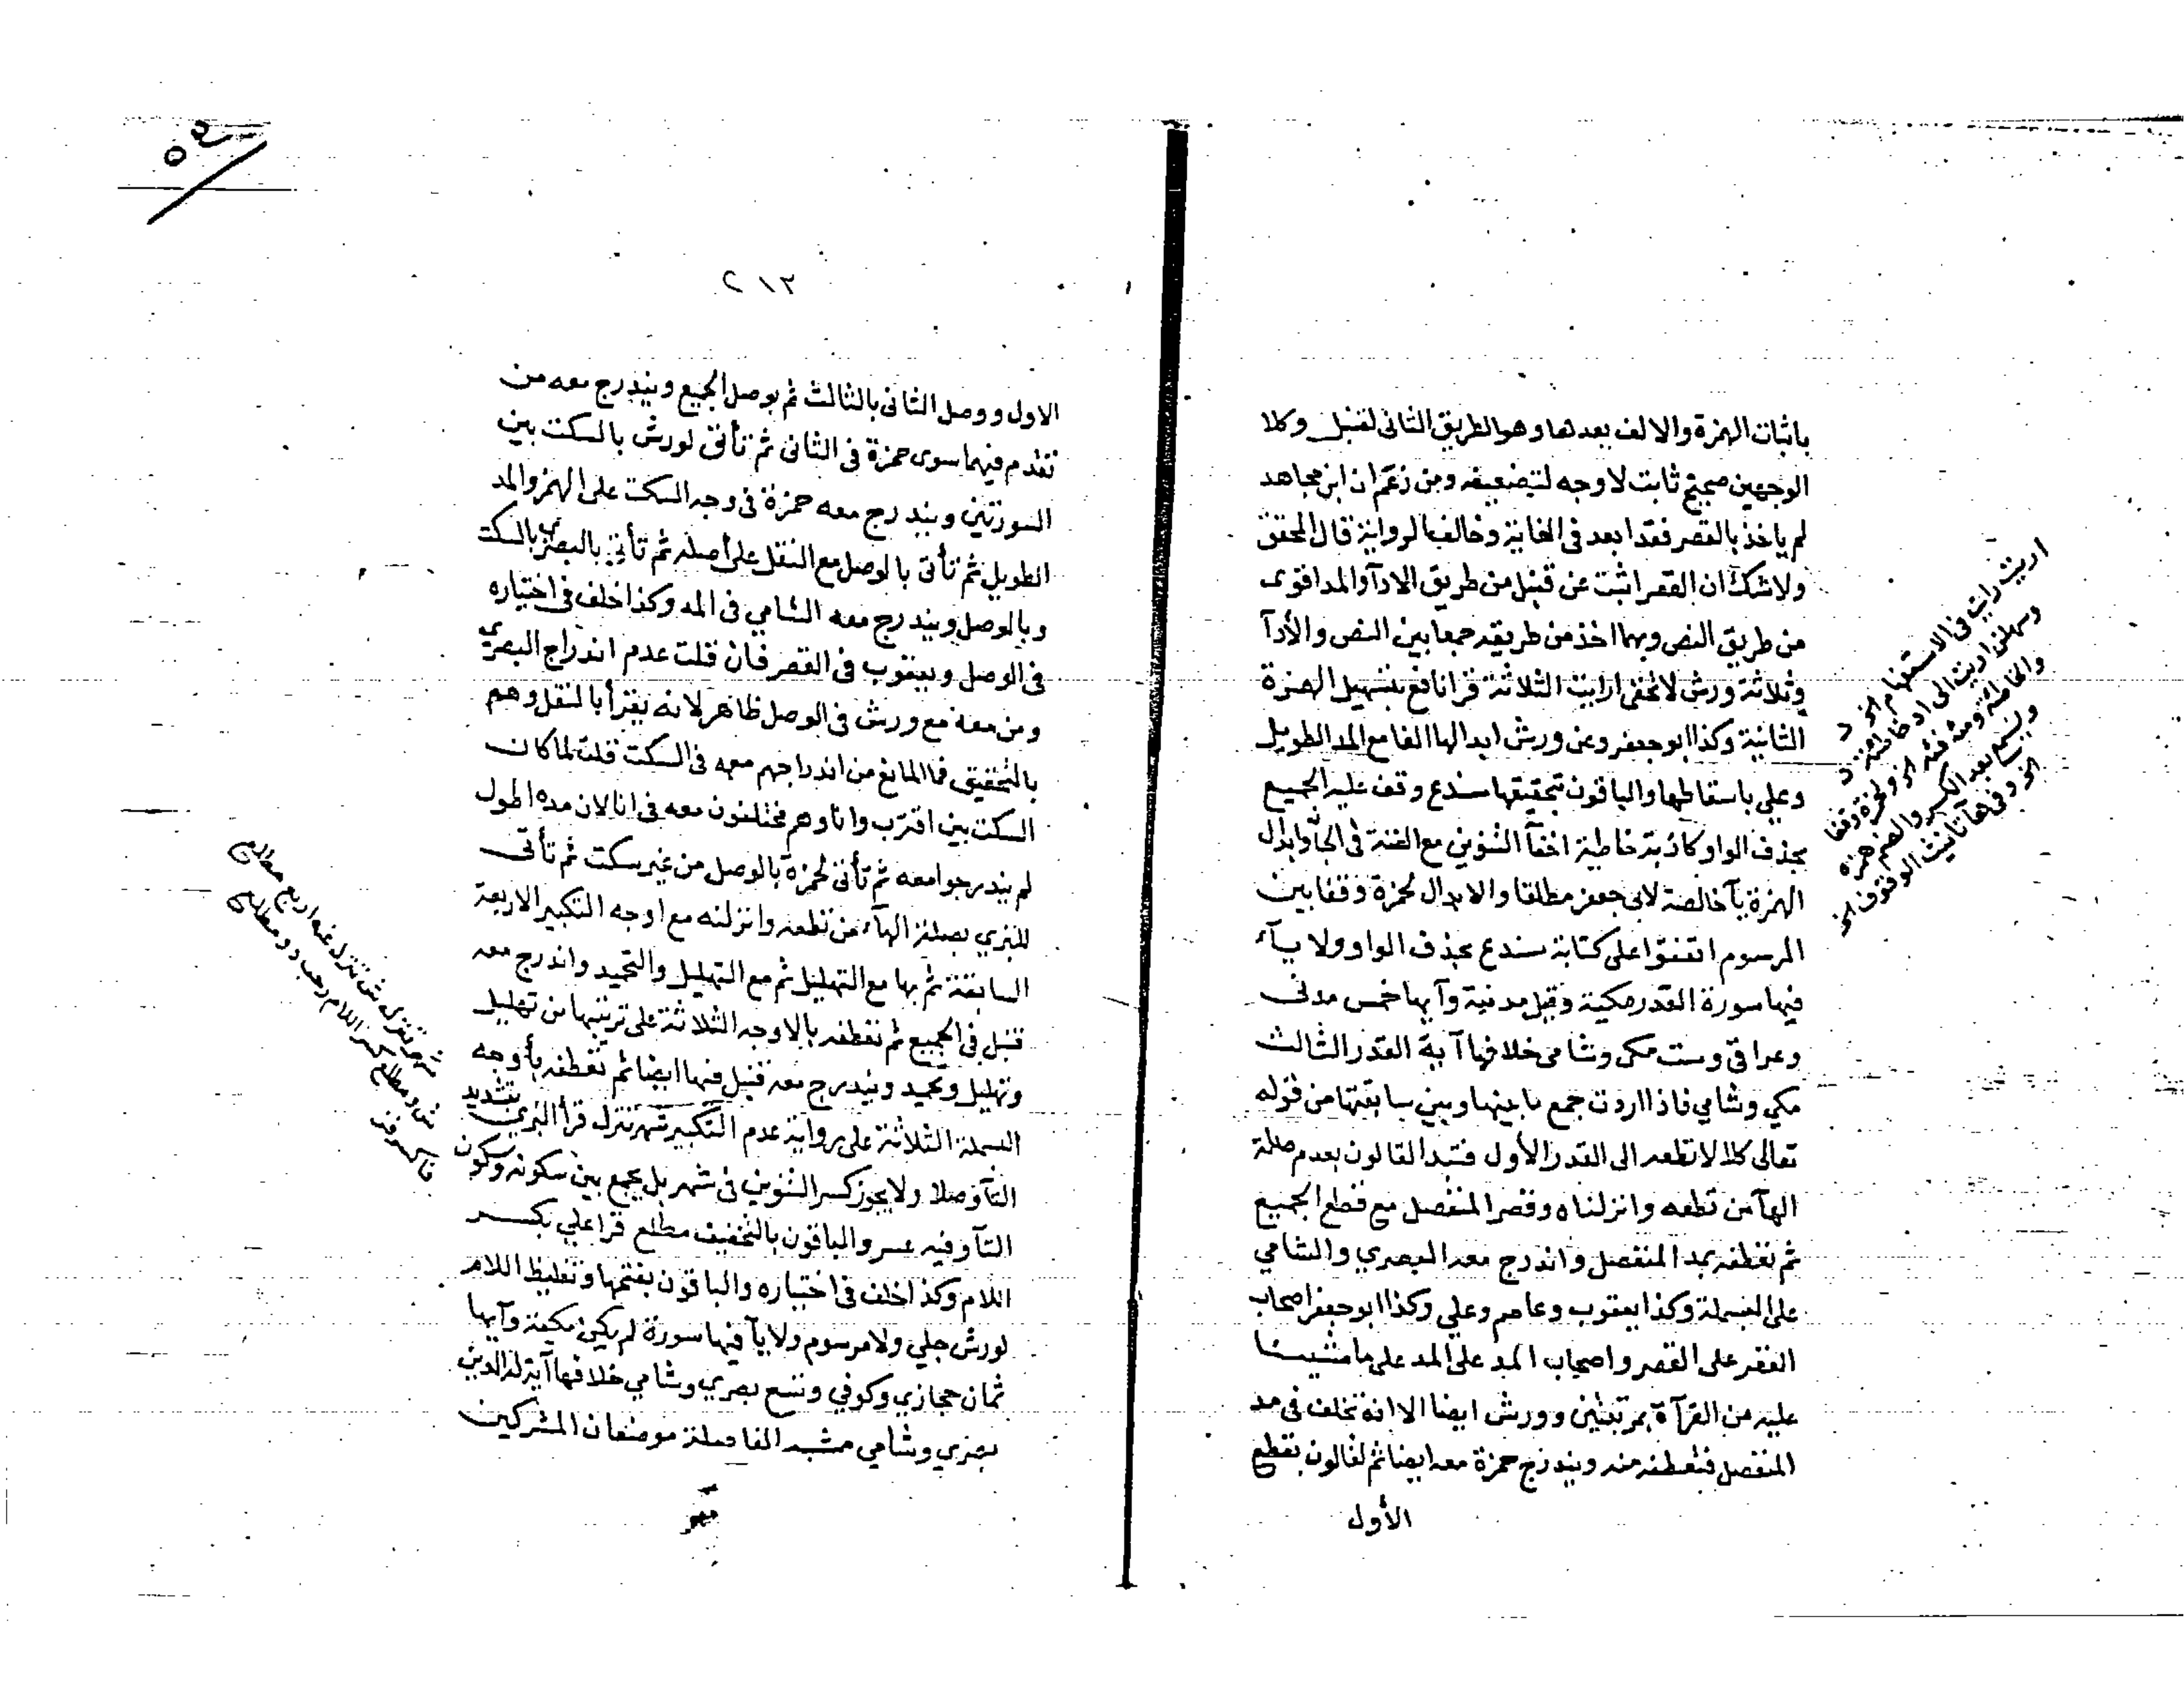 باثبات الهمزة والالف بعدها وهو الطريق الثانى لقنبل وكلا
الوجهين صحيح ثابت لا وجه لتضعيفه ومن زعم ان ابن مجاهد
لم ياخذ بالقصر فقد ابعد فى الغاية وخالف الرواية قال المحقق
ولا شك ان القصر اثبت عن قنبل من طريق الادآ والمد اقوى
من طريق النص وبهما اخذ من طريقه جمعا بين النص والأدآ
وثلاثة ورش لا تخفى ارايت الثلاثة قرا نافع بتسهيل الهمزة
الثانية وكذا ابو جعفر وعن ورش ابدالها الفا مع المد الطويل
وعلي باسقاطها والباقون بتحقيقها سندع وقف عليه الجميع
بحذف الواو كاذبة خاطئة اخفآ التنوين مع الغنة فى الخآ وابدال
الهمزة يآ خالصة لابى جعفر مطلقا والابدال لحمزة وقفا بين
المرسوم اتفقوا على كتابة سندع بحذف الواو ولا يآء
فيها سورة القدر مكية وقيل مدنية وآيها خمس مدنى
وعراقى وست مكى وشامى خلافها آية القدر الثالث
مكي وشامي فاذا اردت جمع ما بينها وبين سابقتها من قوله
تعالى كلا لا تطعه الى القدر الأول فتبدا لقالون بعدم صلة
الهآ من تطعه وانزلناه وقصر المنفصل مع قطع الجميع
ثم تعطفه بمد المنفصل واندرج معه البصري والشامي
على البسملة وكذا يعقوب وعاصم وعلي وكذا ابو جعفر اصحاب
القصر على القصر واصحاب المد على المد على ما مشينا
عليه من القرآة بمرتبتين وورش ايضا الا انه تخلف فى مد
المنفصل فتعطفه منه ويندرج حمزة معه ايضا ثم لقالون بقطع
الأول
اريت رايت فى الاستفهام الخ د
وسهلن اريت الى اد خاطئة د
الخ وفى هآ تانيث الوقوف الخ
٢١٣
الاول ووصل الثانى بالثالث ثم بوصل الجميع ويندرج معه من
تقدم فيهما سوى حمزة فى الثانى ثم تأتى لورش بالسكت بين
السورتين ويندرج معه حمزة فى وجه السكت على الهمز والمد
الطويل ثم تأتى بالوصل مع النقل على أصله ثم تأتي بالبصرى بالسكت
وبالوصل ويندرج معه الشامي فى المد وكذا خلف فى اختياره
فى الوصل ويعقوب فى القصر فان قلت عدم اندراج البصري
ومن معه مع ورش فى الوصل ظاهر لانه يقرأ بالنقل وهم
بالتحقيق فما المانع من اندراجهم معه فى السكت قلت لما كان
السكت بين اقترب وانا وهم مختلفون معه فى انا لان مده اطول
لم يندرجوا معه ثم تأتى لحمزة بالوصل من غير سكت ثم تأتى
للبزي بصلة الهآء من تطعه وانزلنه مع اوجه التكبير الاربعة
السابقة ثم بها مع التهليل ثم مع التهليل والتحميد واندرج معه
قنبل فى الجميع ثم تعطفه بالاوجه الثلاثة على ترتيبها من تهليل
وتهليل وتحميد ويندرج معه قنبل فيها ايضا ثم تعطفه بأوجه
البسملة الثلاثة على رواية عدم التكبير شهر تنزل قرأ البزي بتشديد
التآ وصلا ولا يجوز كسر التنوين فى شهر بل يجمع بين سكونه وسكون
التآ وفيه عسر والباقون بالتخفيف مطلع قرا علي بكسر
اللام وكذا خلف فى اختياره والباقون بفتحها وتغليظ اللام
لورش جلي ولا مرسوم ولا يآ فيها سورة لم يكن مكية وآيها
ثمان حجازي وكوفي وتسع بصري وشامي خلافها آية له الدين
بصري وشامي مشبه الفاصلة موضعان المشركين